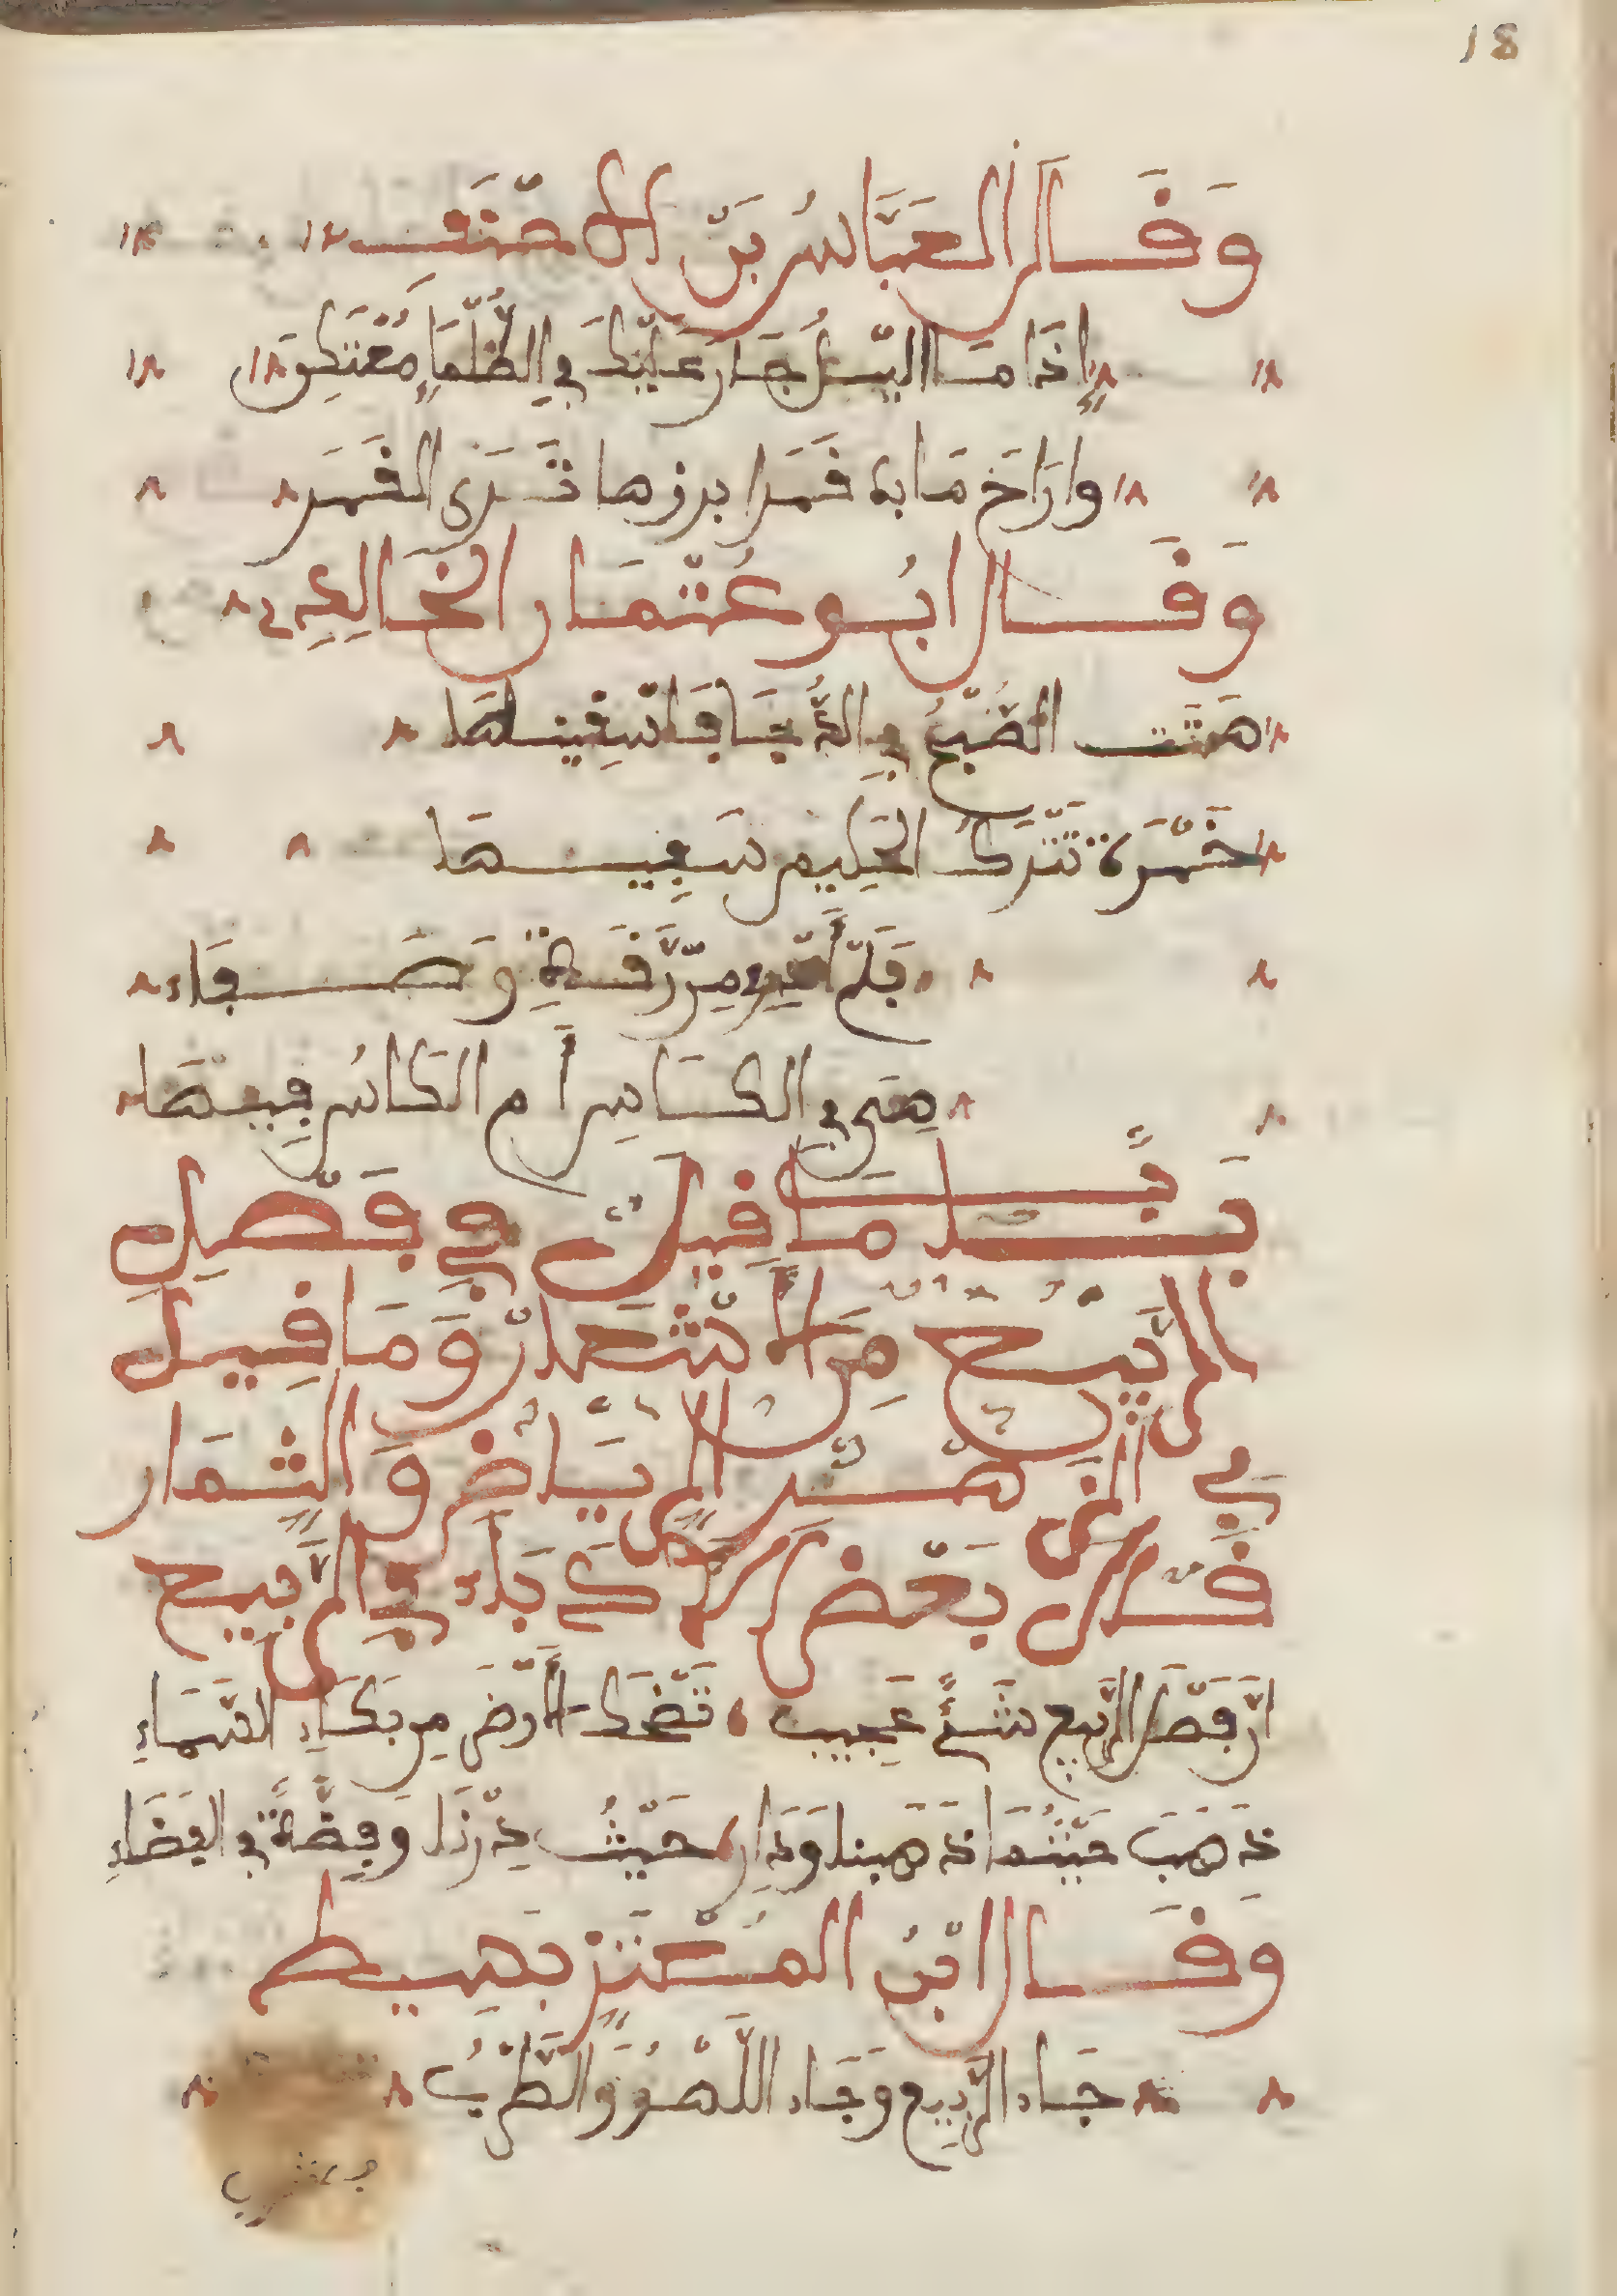 18
وَقَالَ العَبَّاسُ بْنُ الاحْنَف
إِذَا مَا اليْلُ جَارَ عَلَيْكَ فِي الظُّلْمَاءِ مُعْتَكِرَ
وارَاخَ مَا بِهِ قَمَرا ابرزها تَرَى القمَر
وَقَالَ ابُو عُثْمَان الخَالِعِي
هَتَفَ الصُّبْحُ فِي الدُّجَا فَاسْقِنِيهَا
خَمْرَةً تَتْرُكُ الحَلِيم سَفِيهَا
فَلَمْ أَدْرِ مِنْ رَّقَةٍ وَصَفَاء
هِيَ فِي الكَاسِ أَم الكَاسُ فِيهَا
بَابُ مَا قِيلَ فِي فَصْلِ
الرَّبِيْعِ مِنَ الأَشْعَارْ وَمَا قِيلَ
فِي الزَّهْرِ الرِّيَاضِ وَالثِّمَار
قَالَ بَعْضُ الحُكَمَاء فِي الرَّبِيع
انَّ فَصْلَ الرَّبِيعِ شَيْءٌ عَجِيب تَضْحَكُ الأَرْضُ مِن بُكَاءِ السَّمَاءِ
ذَهَبٌ حَيْثُمَا ذَهَبْنَا وَدُرٌّ حَيْثُ دِرْنَا وَفِضَّةٌ فِي الفَضَاءِ
وَقَالَ ابْنُ المُعْتَزِّ بَسِيط
جَاء الرَّبِيعُ وَجَاء اللَّهْوُ وَالطَّرْبُ